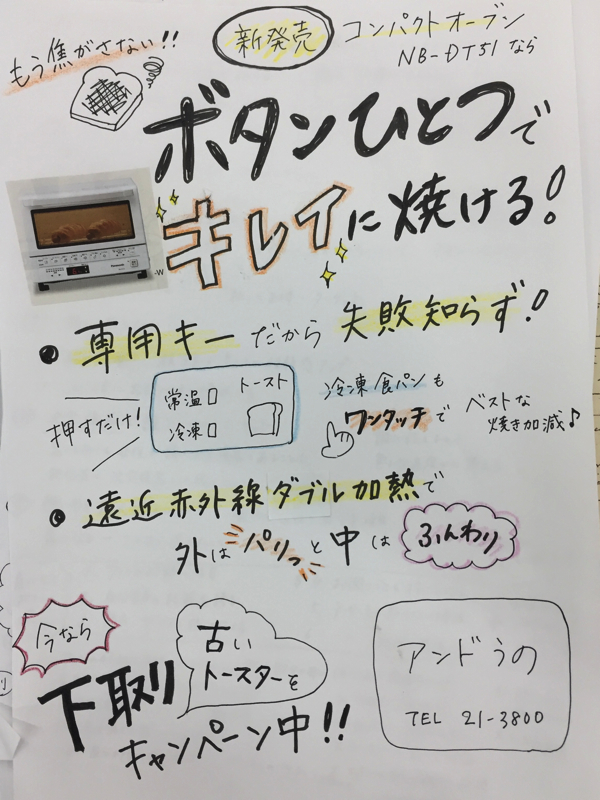 もう焦がさない!!
新発売 コンパクトオーブン
NB-DT51なら
ボタンひとつで
キレイに焼ける!
Panasonic
-W
• 専用キーだから失敗知らず!
押すだけ!
常温 トースト
冷凍
冷凍食パンも
ワンタッチで
ベストな
焼き加減♪
• 遠近赤外線ダブル加熱で
外はパリッと中はふんわり
今なら
古い
トースターを
下取り
キャンペーン中!!
アンドうの
TEL 21-3800